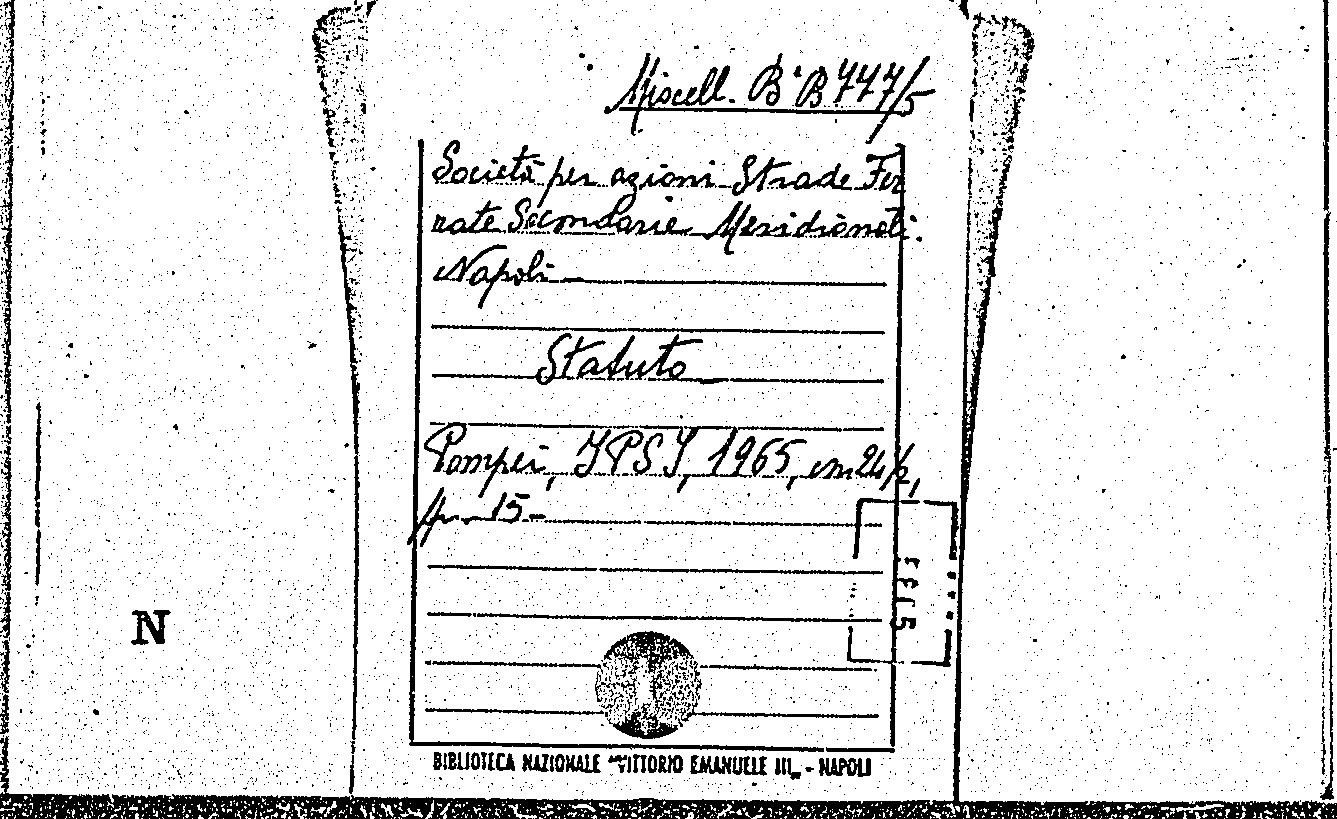 Miscell. B. B 747/5
Società per azioni Strade Fer
rate Secondarie Meridionali.
Napoli
Statuto
Pompei, IPSI, 1965, cm 24/2,
pp. 15-
N
BIBLIOTECA NAZIONALE "VITTORIO EMANUELE III„ - NAPOLI